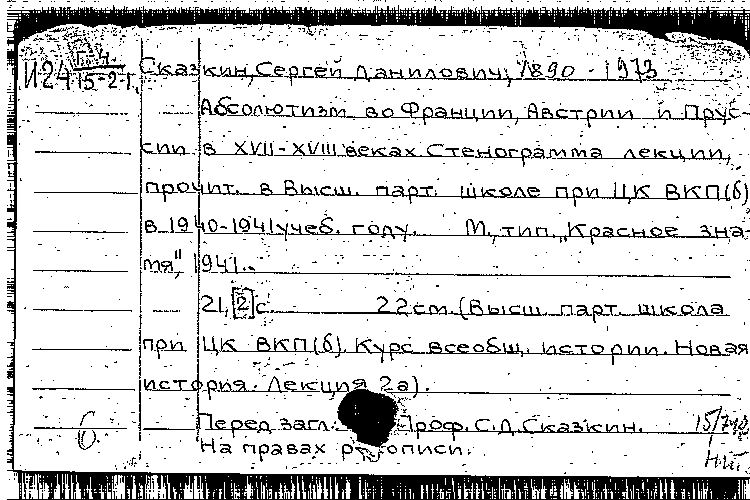 Г-4
И24 15-2-1
Сказкин, Сергей Данилович, 1890 - 1973
Абсолютизм во Франции, Австрии и Прус-
сии в XVII-XVIII веках. Стенограмма лекции,
прочит. в Высш. парт. школе при ЦК ВКП(б)
в 1940-1941 учеб. году. М., тип. „Красное зна-
мя", 1941.
21, [2] с. 22см. (Высш. парт. школа
при ЦК ВКП(б). Курс всеобщ. истории. Новая
история. Лекция 2а).
Перед загл.: Проф. С.Д. Сказкин.
На правах рукописи.
б